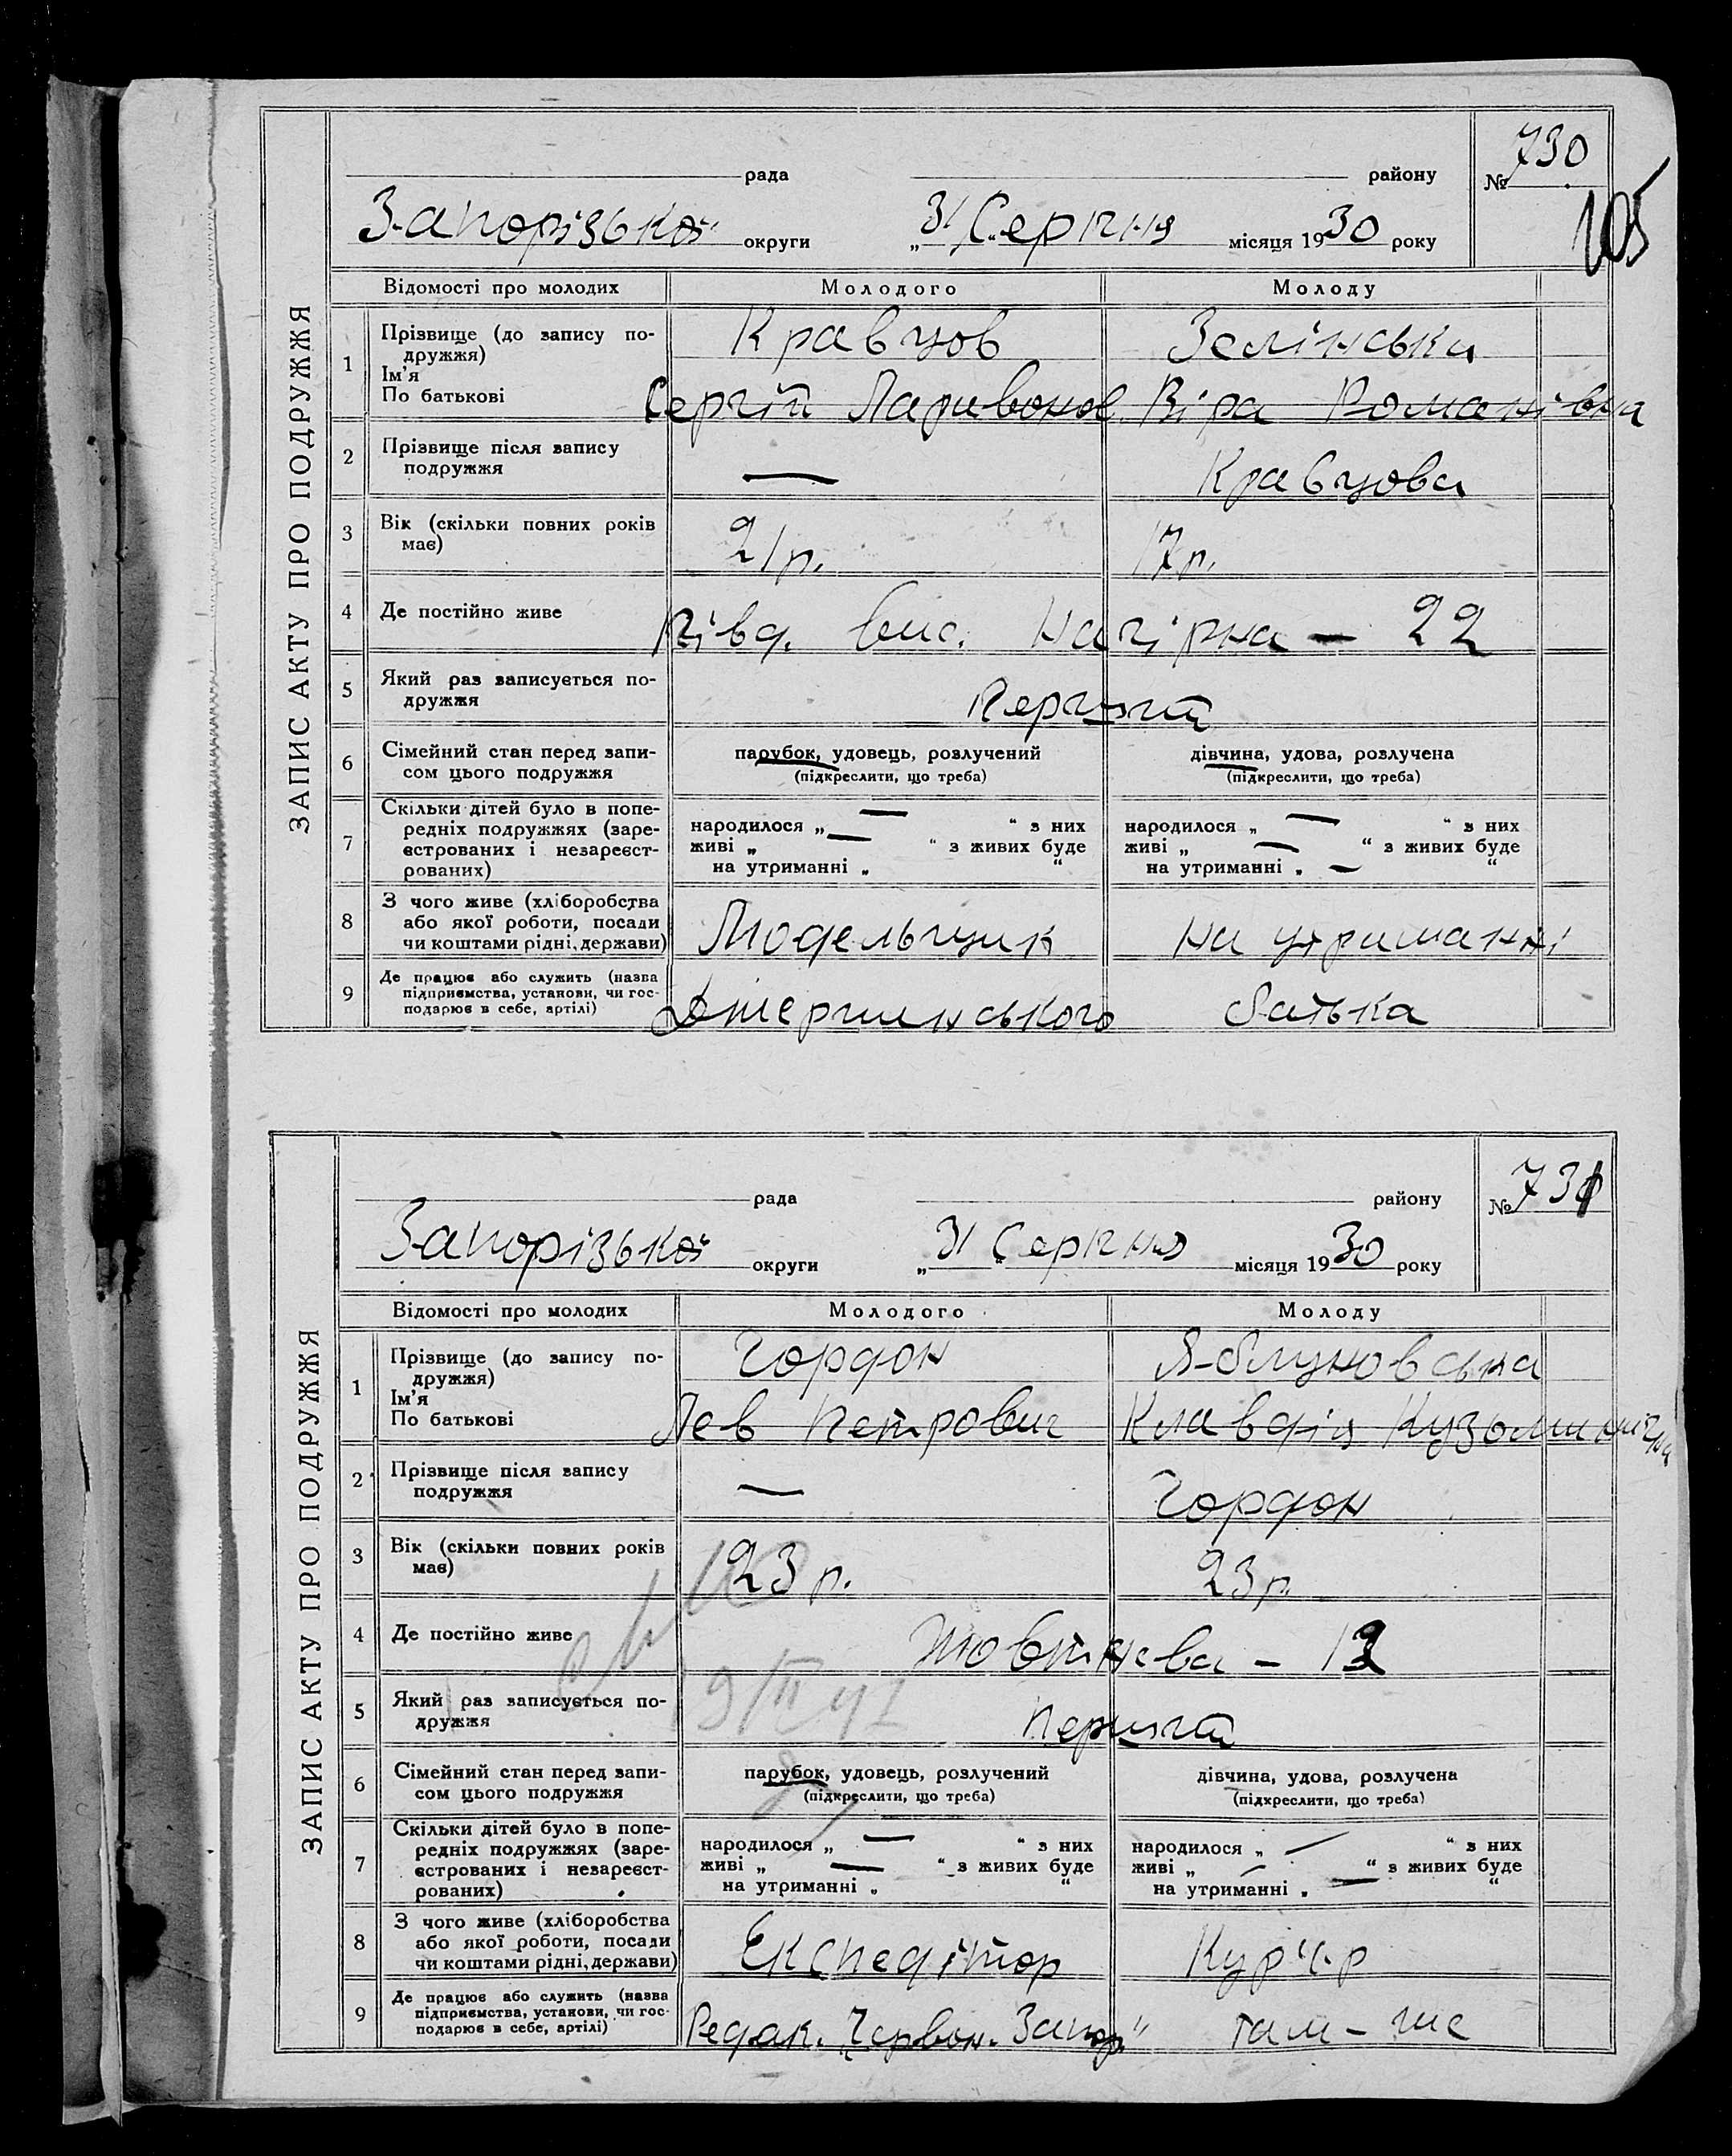 ЗАПИС АКТУ ПРО ПОДРУЖЖЯ
рада району № 730
105
Запорізької округи „31“ Серпня місяця 1930 року
Відомості про молодих Молодого Молоду
1 Прізвище (до запису по-
дружжя) Кравцов Зелінська
Ім'я
По батькові Сергій Ларивонов. Віра Романівна
2 Прізвище після запису
подружжя — Кравцова
3 Вік (скільки повних років
має) 21 р. 17 р.
4 Де постійно живе Півд. вис. Нагірна — 22
5 Який раз записується по-
дружжя Перший
6 Сімейний стан перед запи-
сом цього подружжя
парубок, удовець, розлучений дівчина, удова, розлучена
(підкреслити, що треба) (підкреслити, що треба)
7 Скільки дітей було в попе-
редніх подружжях (заре-
єстрованих і незареєст-
рованих)
народилося „ — “ з них народилося „ — “ з них
живі „ — “ з живих буде живі „ — “ з живих буде
на утриманні „ “ на утриманні „ — “
8 З чого живе (хліборобства
або якої роботи, посади
чи коштами рідні, держави) Модельщик на утриманні
9 Де працює або служить (назва
підприємства, установи, чи гос-
подарює в себе, артілі) Джержинського батька
ЗАПИС АКТУ ПРО ПОДРУЖЖЯ
рада району № 731
Запорізької округи „31“ Серпня місяця 1930 року
Відомості про молодих Молодого Молоду
1 Прізвище (до запису по-
дружжя) Гордон Яблуновська
Ім'я
По батькові Лев Петрович Клавдія Кузьминічна
2 Прізвище після запису
подружжя — Гордон
3 Вік (скільки повних років
має) 23 р. 23 р.
4 Де постійно живе Жовтнева — 13
5 Який раз записується по-
дружжя Перший
9/II 41
6 Сімейний стан перед запи-
сом цього подружжя
парубок, удовець, розлучений дівчина, удова, розлучена
(підкреслити, що треба) (підкреслити, що треба)
7 Скільки дітей було в попе-
редніх подружжях (заре-
єстрованих і незареєст-
рованих)
народилося „ — “ з них народилося „ — “ з них
живі „ — “ з живих буде живі „ — “ з живих буде
на утриманні „ “ на утриманні „ — “
8 З чого живе (хліборобства
або якої роботи, посади
чи коштами рідні, держави) Експедітор Кур'єр
9 Де працює або служить (назва
підприємства, установи, чи гос-
подарює в себе, артілі) Редак. Червон. Запор." там-же